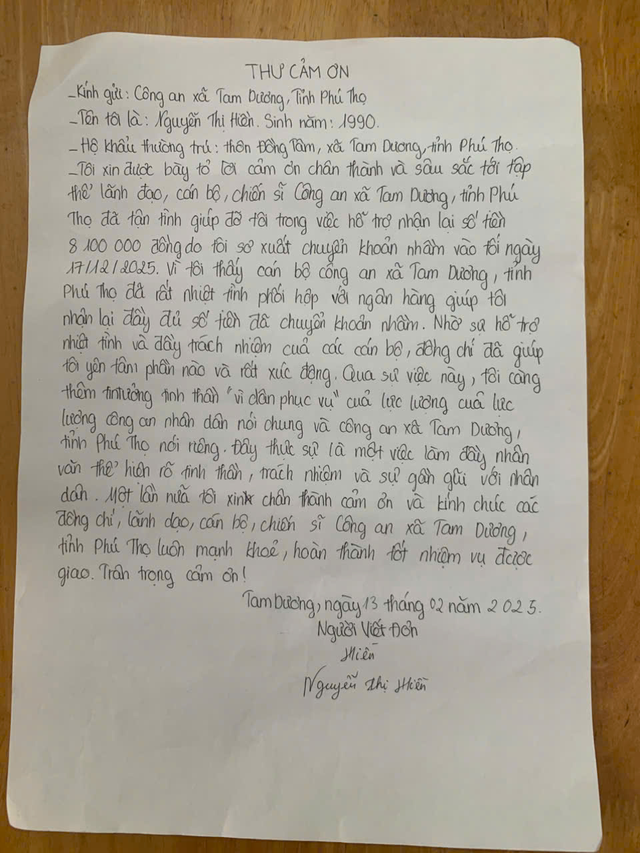 THƯ CẢM ƠN
- Kính gửi: Công an xã Tam Dương, Tỉnh Phú Thọ
- Tên tôi là: Nguyễn Thị Hiền. Sinh năm: 1990.
- Hộ khẩu thường trú: thôn Đồng Tâm, xã Tam Dương, tỉnh Phú Thọ.
- Tôi xin được bày tỏ lời cảm ơn chân thành và sâu sắc tới tập
thể lãnh đạo, cán bộ, chiến sĩ Công an xã Tam Dương, tỉnh Phú
Thọ đã tận tình giúp đỡ tôi trong việc hỗ trợ nhận lại số tiền
8 100 000 đồng do tôi sơ xuất chuyển khoản nhầm vào tối ngày
17/12/2025. Vì tôi thấy cán bộ công an xã Tam Dương, tỉnh
Phú Thọ đã rất nhiệt tình phối hôp với ngân hàng giúp tôi
nhận lại đầy đủ số tiền đã chuyển khoản nhầm. Nhờ sự hỗ trợ
nhiệt tình và đầy trách nhiệm cuả các cán bộ, đồng chí đã giúp
tôi yên tâm phần nào và rất xúc động. Qua sự việc này, tôi càng
thêm tin tưởng tinh thần "vì dân phục vụ" cuả lực lượng cuả lực
lượng công an nhân dân nói chung và công an xã Tam Dương,
tỉnh Phú Thọ nói riêng. Đây thực sự là một việc làm đầy nhân
văn thể hiện rõ tinh thần, trách nhiệm và sự gần gũi với nhân
dân. Một lần nữa tôi xin chân thành cảm ơn và kính chúc các
đồng chí, lãnh đạo, cán bộ, chiến sĩ Công an xã Tam Dương,
tỉnh Phú Thọ luôn mạnh khoẻ, hoàn thành tốt nhiệm vụ được
giao. Trân trọng cảm ơn!
Tam Dương, ngày 13 tháng 02 năm 2025.
Người Viết Đơn
Hiền
Nguyễn Thị Hiền